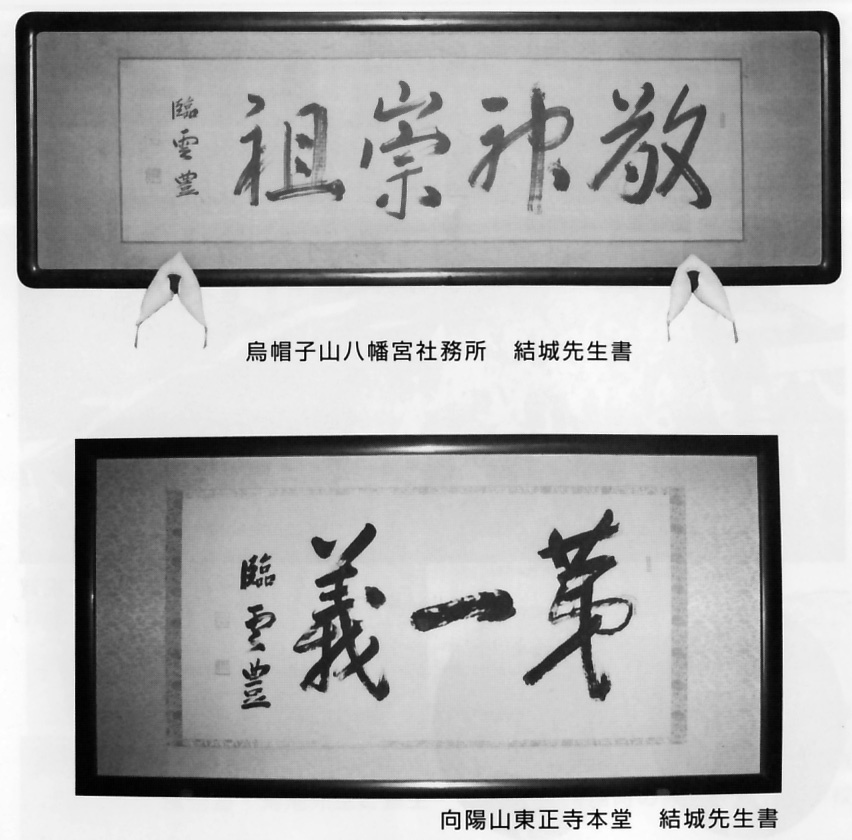 敬神崇祖
臨雲豊
烏帽子山八幡宮社務所　結城先生書
第一義
臨雲豊
向陽山東正寺本堂　結城先生書